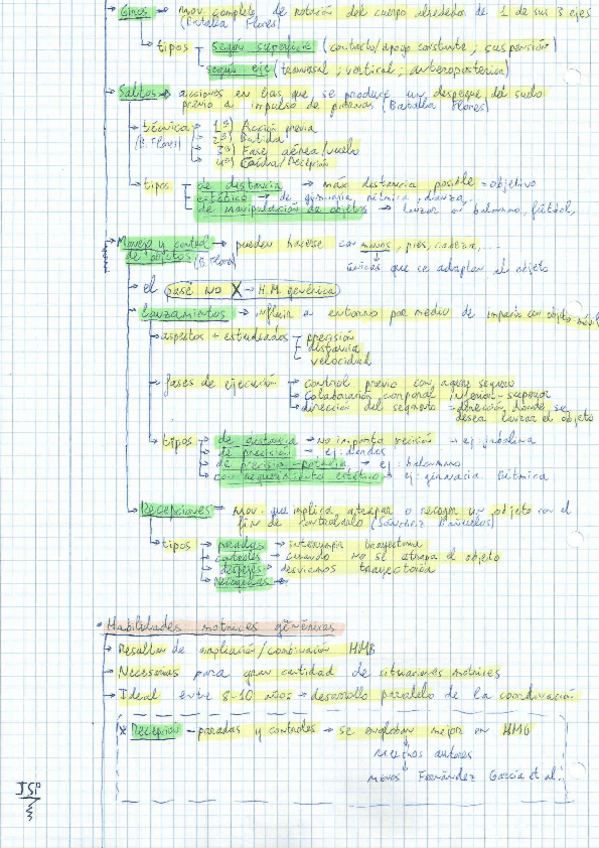 Giros → mov. completo de rotación del cuerpo alrededor de 1 de sus 3 ejes
(Batalla Flores)
tipos según superficie (contacto/apoyo constante; suspensión)
según eje (transversal; vertical; anteroposterior)
Saltos → acciones en las que se produce un despegue del suelo
previo a impulso de piernas (Batalla Flores)
técnica → 1º) Acción previa
(B. Flores) → 2º) Batida
→ 3º) Fase aérea/vuelo
→ 4º) Caída/Recepción
tipos de distancia → máx distancia posible = objetivo
estético → de gimnasia rítmica, danza,
de manipulación de objetos → lanzar en balonmano, fútbol,
Manejo y control → pueden hacerse con manos, pies, cabeza, ...
de objetos (B. Flores)
únicas que se adaptan al objeto
el pase NO X → H.M. genérica
Lanzamientos → influir en entorno por medio de con objeto móvil
aspectos + estudiados precisión
distancia
velocidad
fases de ejecución → control previo con agarre seguro
→ colaboración corporal inferior-superior
→ dirección del segmento = dirección donde se
desea lanzar el objeto
tipos → de distancia → no importa precisión → ej: jabalina
→ de precisión → ej: dardos
→ de precisión-potencia → ej: balonmano
→ con requerimiento estético → ej: gimnasia Rítmica
Recepciones → mov. que implica atrapar o recoger un objeto con el
fin de controlarlo (Sánchez Bañuelos)
tipos → paradas → interrumpir trayectoria
→ controles → cuando no se atrapa el objeto
→ despejes → desviamos trayectoria
→ recogidas →
• Habilidades motrices genéricas
→ Resultan de ampliación/combinación HMB
→ Necesarias para gran cantidad de situaciones motrices
→ Ideal entre 8-10 años → desarrollo paralelo de la coordinación
* Recepción - paradas y controles → se engloban mejor en HMG
muchos autores
menos Fernández García et al.
JSP